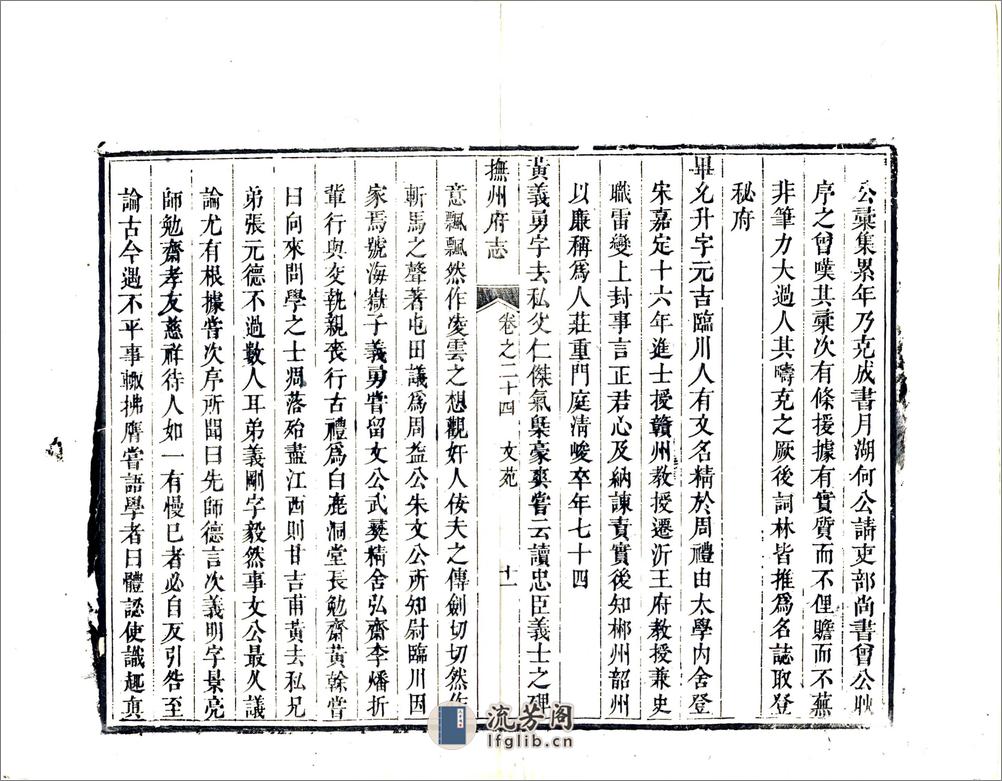 公藁集累年乃克成書月湖何公請吏部尚書曾公耿
序之曾嘆其藁次有條援據有實質而不俚贍而不蕪
非筆力大過人其疇克之厥後詞林皆推爲名誌取登
秘府
畢允升字元吉臨川人有文名精於周禮由太學內舍登
宋嘉定十六年進士授贛州教授遷沂王府教授兼史
職雷變上封事言正君心及納諫責實後知郴州韶州
以廉稱爲人莊重門庭清峻卒年七十四
黃義勇字去私父仁傑氣槩豪爽嘗云讀忠臣義士之碑
撫州府志
卷之二十四
文苑
十一
意飄飄然作凌雲之想觀奸人佞夫之傳劍切切然作
斬馬之聲著屯田議爲周益公朱文公所知尉臨川因
家焉號海嶽子義勇嘗留文公武彝精舍弘齋李燔折
輩行與交執親喪行古禮爲白鹿洞堂長勉齋黃榦嘗
曰向來問學之士凋落殆盡江西則甘吉甫黃去私兄
弟張元德不過數人耳弟義剛字毅然事文公最久議
論尤有根據嘗次序所聞曰先師德言次義明字景亮
師勉齋孝友慈祥待人如一有慢已者必自反引咎至
論古今遇不平事輙拂膺嘗語學者曰體認使識趣真
流芳阁
lfglib.cn